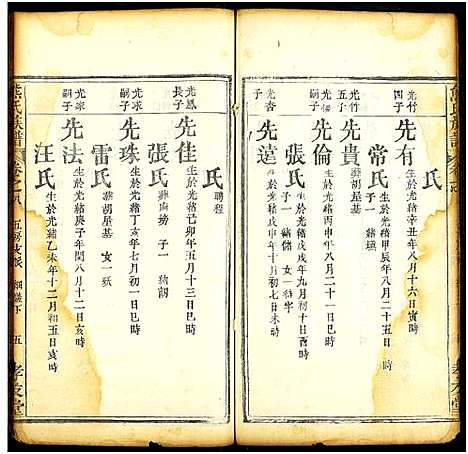 熊氏族譜
光竹四子
先有
生於光緒辛丑年八月十六日寅時
氏
光竹五子
先貴
生於光緒甲辰年八月二十五日卯時
常氏
子一
先倫
生於光緒丙申年八月二十一日巳時
張氏
子一
女一
光杏子
先達
生於光緒戊戌年十月初七日未時
孝友堂
氏
聘程
光鳳長子
先佳
生於光緒己卯年五月十三日巳時
張氏
子一
光求嗣子
先珠
生於光緒丁亥年七月初一日巳時
雷氏
葬胡星基
女一
光求嗣子
先法
生於光緒庚子年閏八月十二日亥時
汪氏
生於光緒乙未年十二月初五日亥時
熊氏族譜
卷之八
五房
五
孝友堂